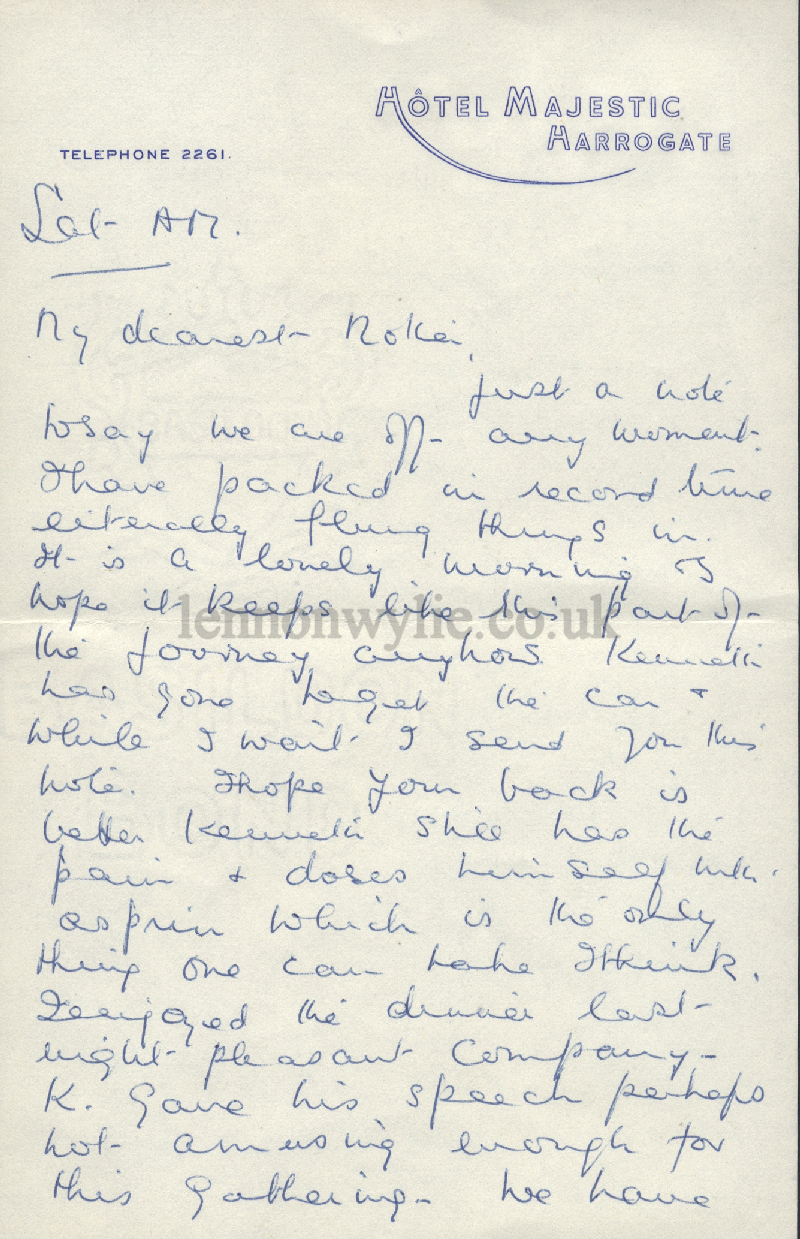 HÔTEL MAJESTIC
HARROGATE
TELEPHONE 2261.
Sat AM.
My dearest
just a note
to say we are off any moment.
I have packed in record time
literally flung things in.
It is a lovely morning & I
hope it keeps like this part of
lennonwylie.co.uk
the journey anyhow. Kenneth
has gone to get the car &
while I wait I send you this
note. I hope your back is
better Kenneth still has the
pain & doses himself with
asprin which is the only
thing one can take I think.
I enjoyed the dinner last
night pleasant company -
K. gave his speech perhaps
not amusing enough for
this gathering - We have